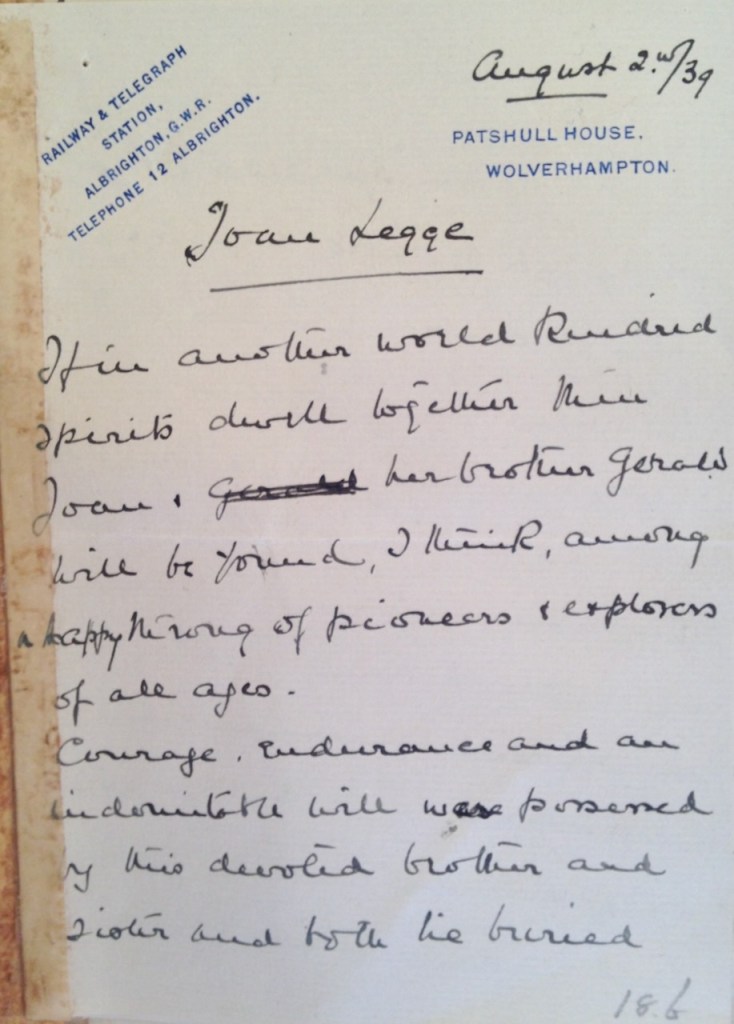 RAILWAY & TELEGRAPH
STATION,
ALBRIGHTON, G.W.R.
TELEPHONE 12 ALBRIGHTON.
August 2nd/39
PATSHULL HOUSE,
WOLVERHAMPTON.
Joan Legge
If in another world Kindred
spirits dwell together then
Joan & Gerald her brother Gerald
will be found, I think, among
a happy throng of pioneers & explorers
of all ages.
Courage, endurance and an
indomitable will were possessed
by this devoted brother and
sister and both lie buried
186